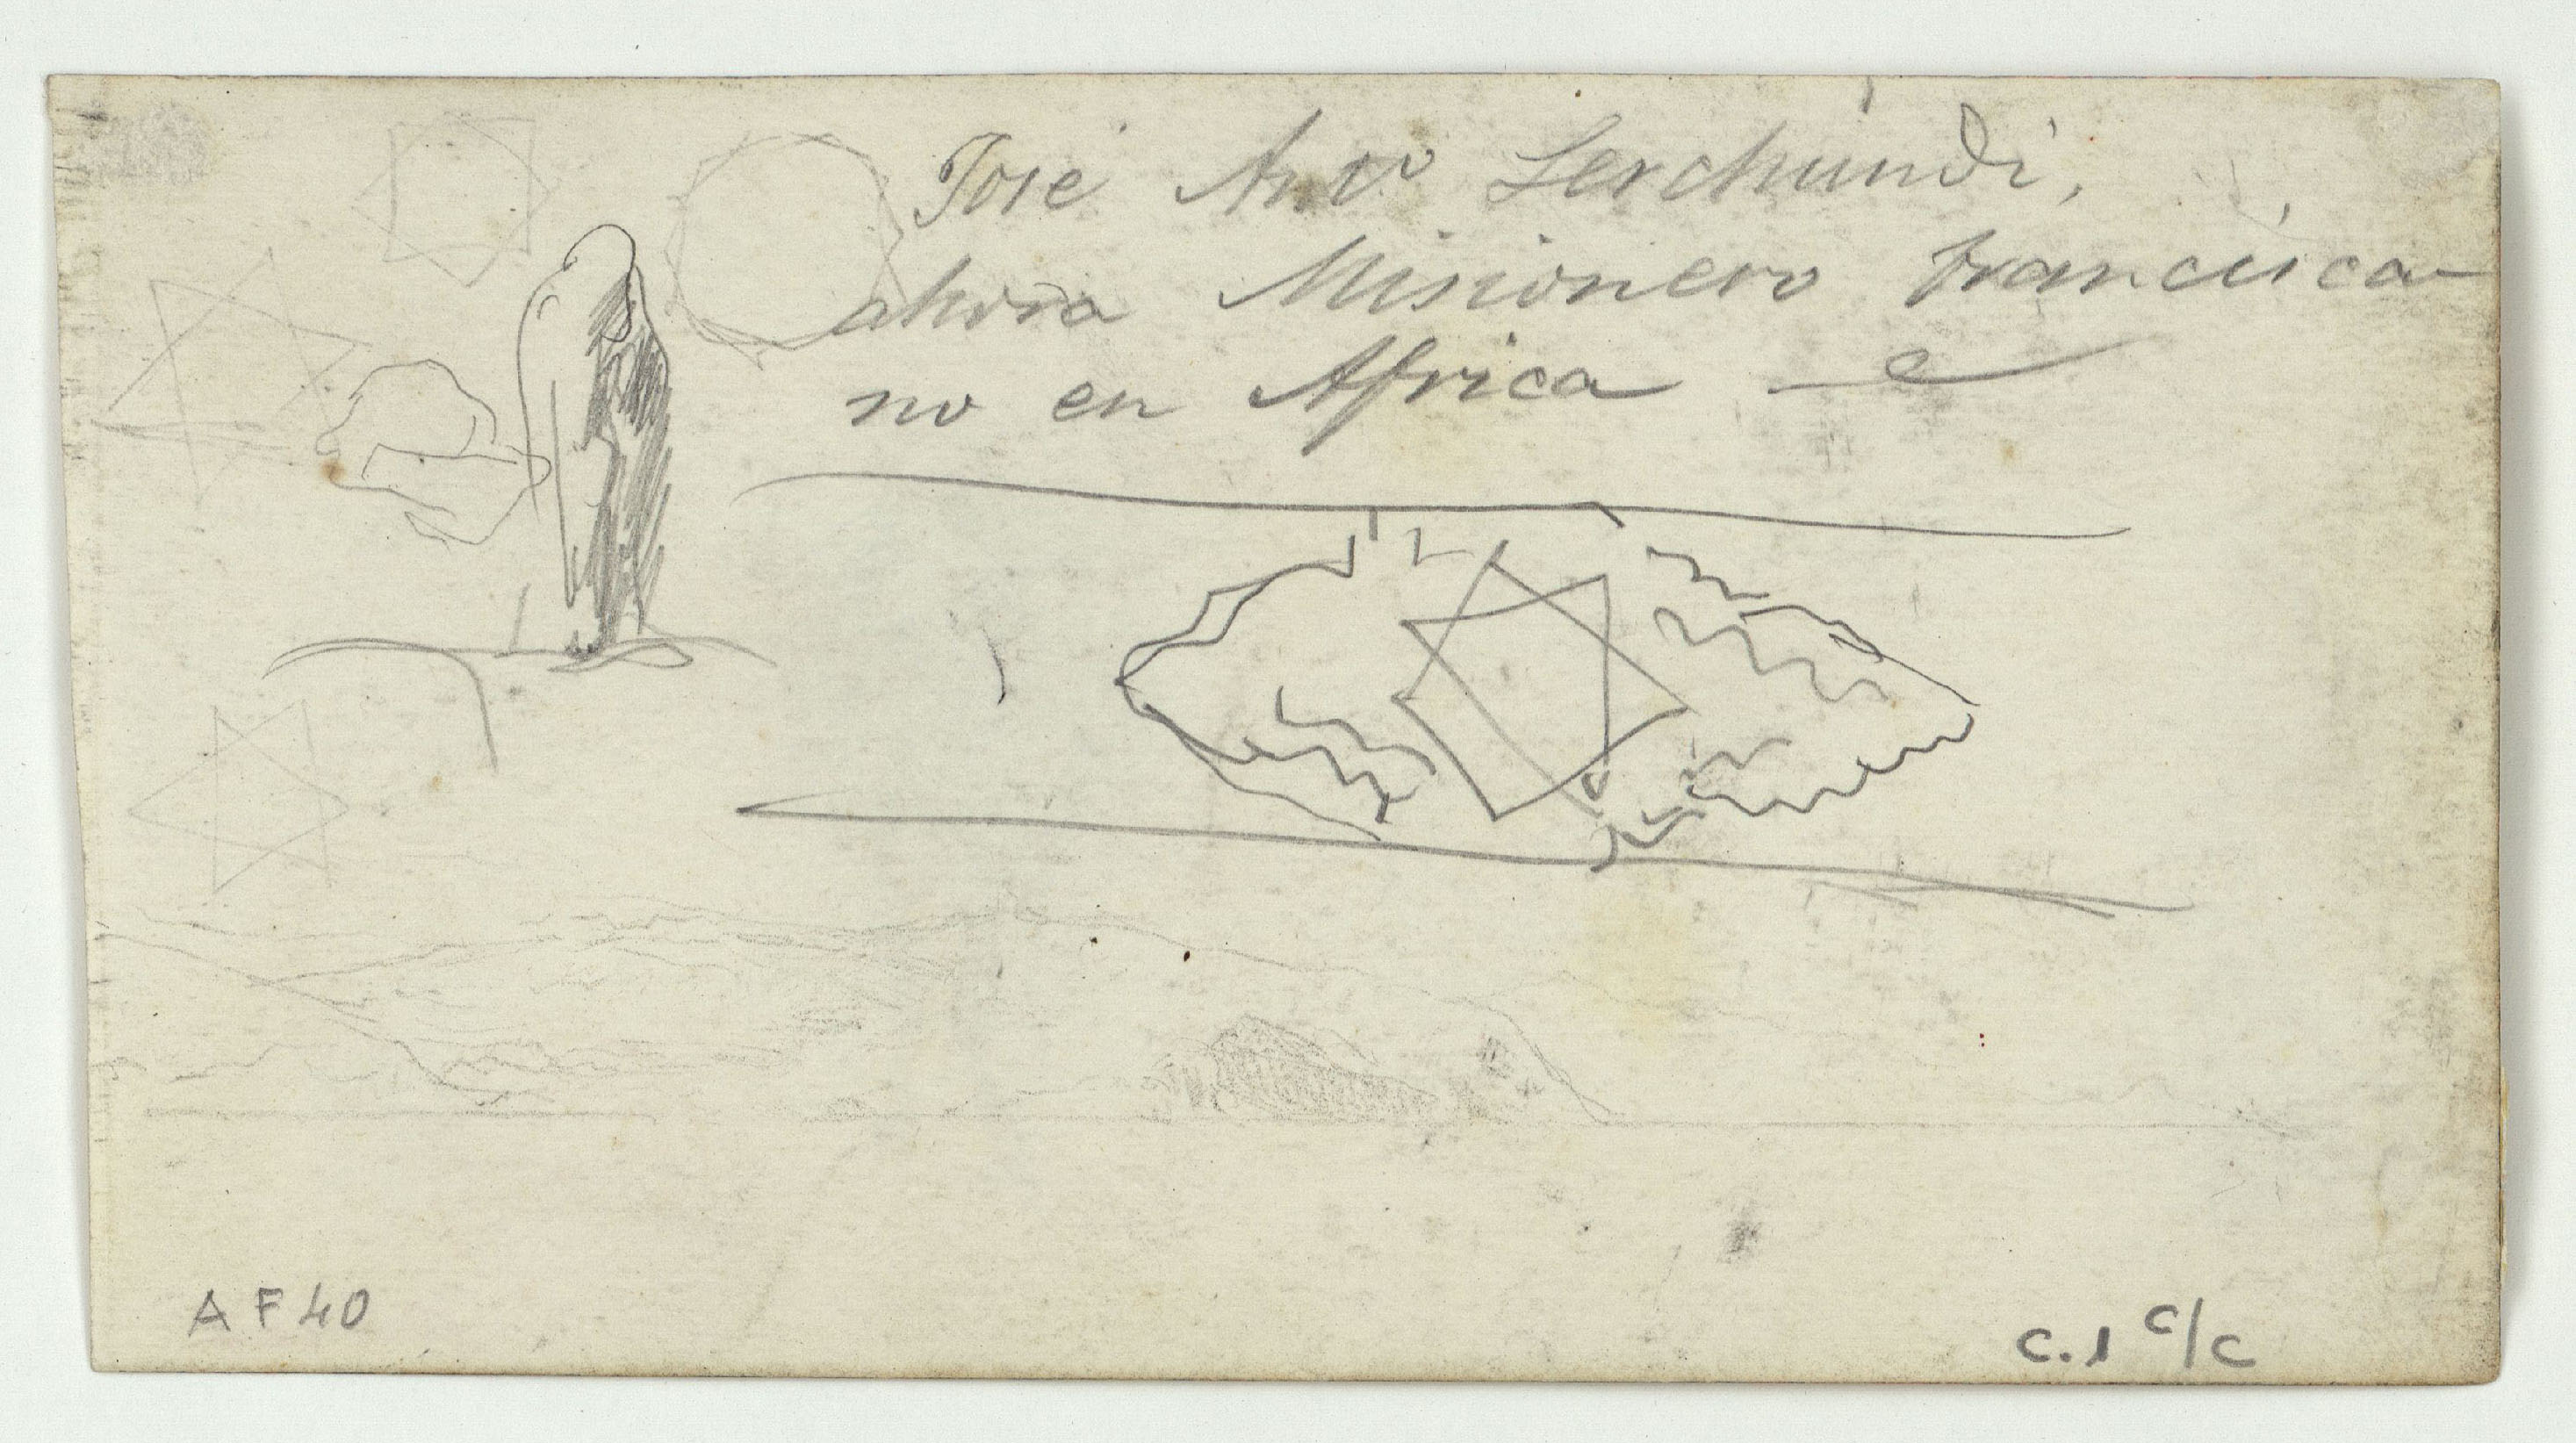 José Anto Lerchundi,
ahora Misionero Francisca
no en Africa
A F 40
C.1 C/C